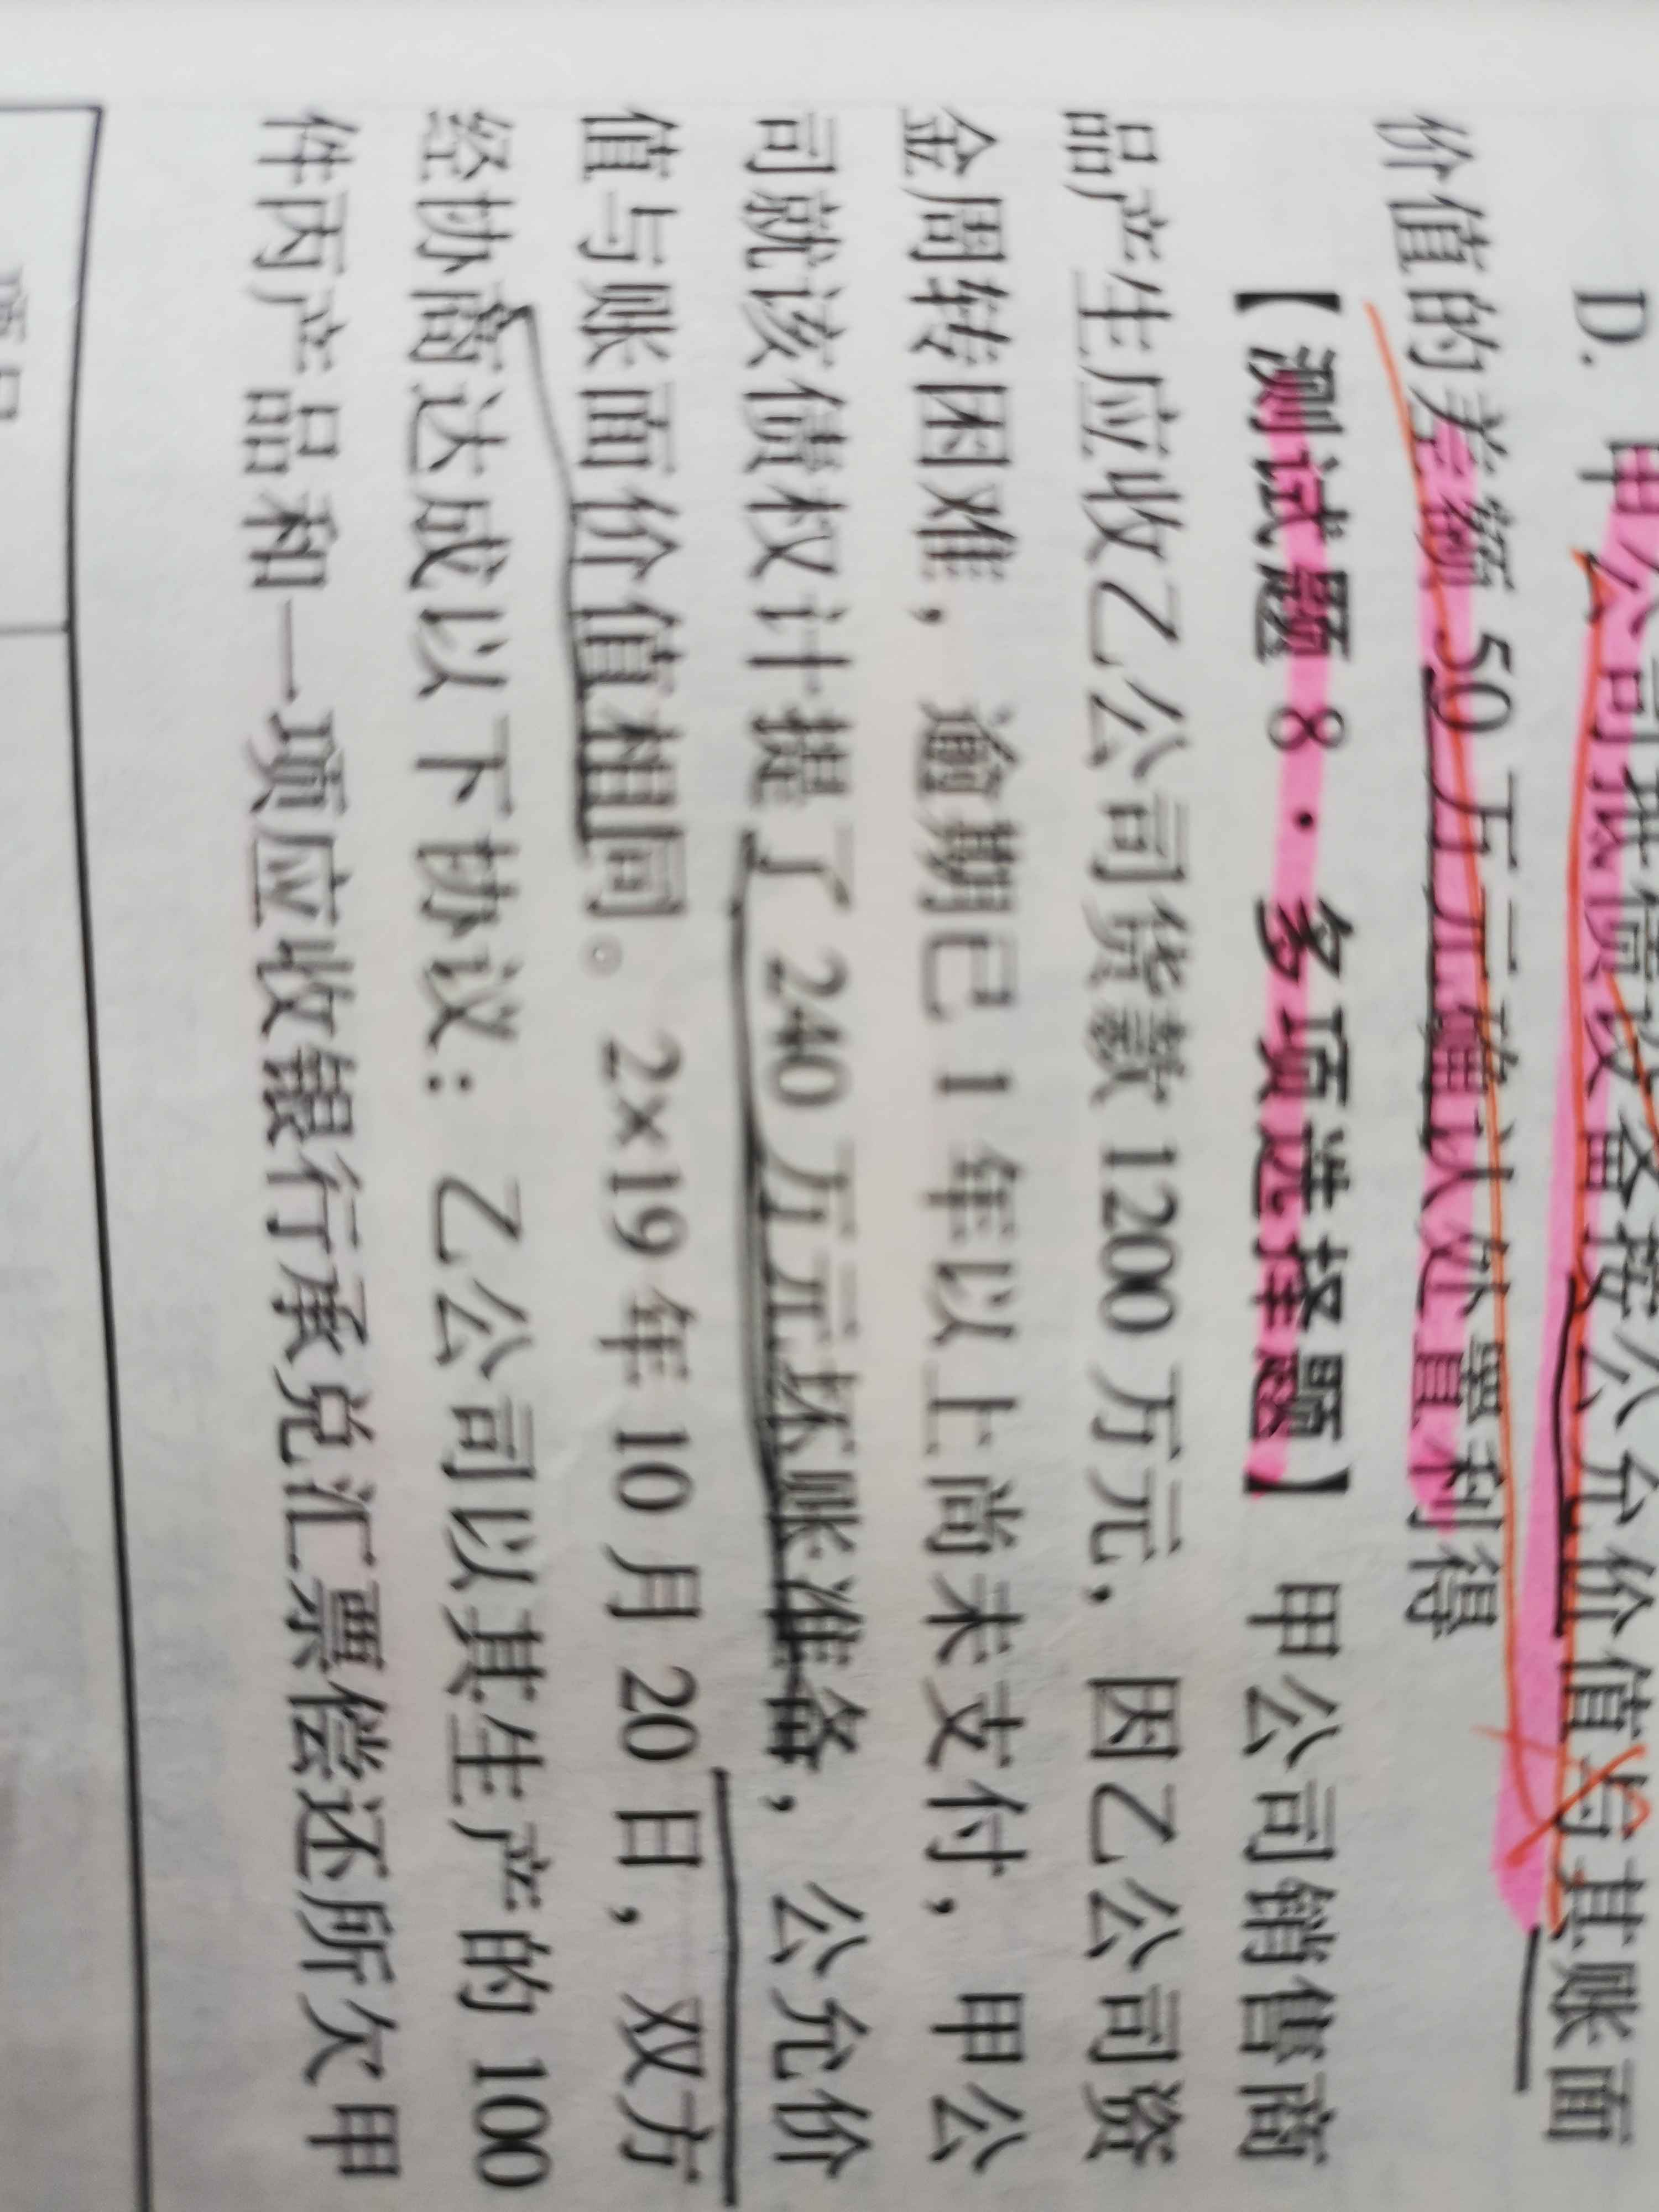 D. 甲公司抵债设备按公允价值与其账面
价值的差额 50 万元确认处置利得
【测试题 8·多项选择题】 甲公司销售商
品产生应收乙公司货款 1200 万元，因乙公司资
金周转困难，逾期已 1 年以上尚未支付，甲公
司就该债权计提了 240 万元坏账准备，公允价
值与账面价值相同。2×19 年 10 月 20 日，双方
经协商达成以下协议：乙公司以其生产的 100
件丙产品和一项应收银行承兑汇票偿还所欠甲